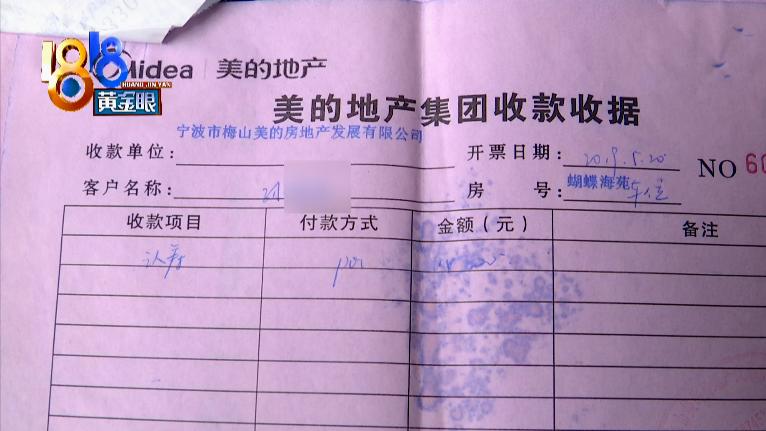 1818
HUANG JIN YAN
黄金眼
Midea 美的地产
美的地产集团收款收据
宁波市梅山美的房地产发展有限公司
收款单位: 开票日期: 2019.5.20
NO 60
客户名称: 房 号: 蝴蝶海苑 车位
收款项目 付款方式 金额(元) 备注
认筹 pos